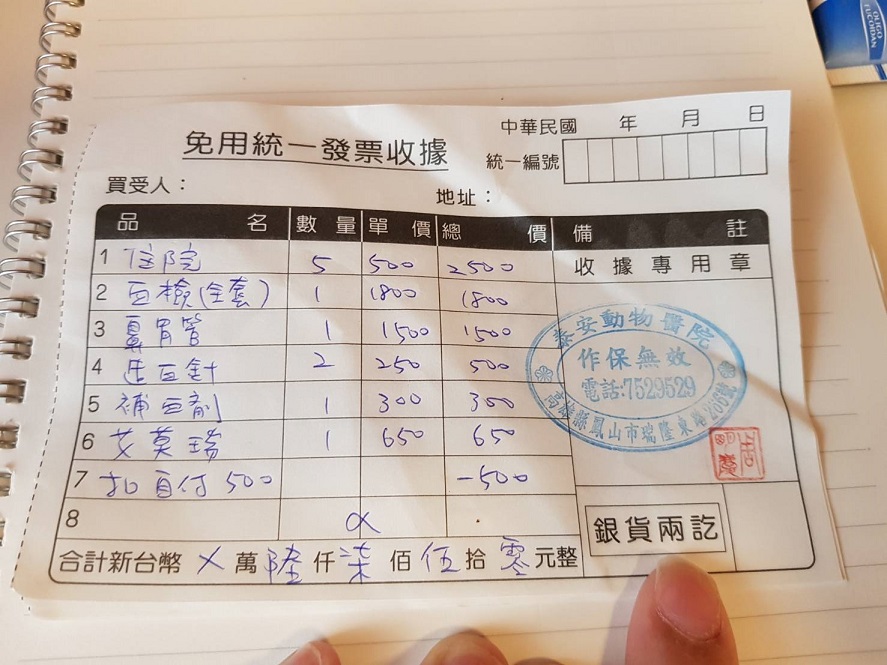 OLIGO
FUCOIDAN
免用統一發票收據
中華民國 年 月 日
統一編號
買受人：
地址：
品 名 數 量 單 價 總 價 備 註
收據專用章
1 住院 5 500 2500
2 血檢(全套) 1 1800 1800
3 鼻胃管 1 1500 1500
4 造血針 2 250 500
5 補血劑 1 300 300
6 艾莫瑞 1 650 650
7 扣自付500 -500
8
泰安動物醫院
作保無效
電話:7529529
高雄縣鳳山市瑞隆東路266號
合計新台幣 ㄨ 萬 陸 仟 柒 佰 伍 拾 零 元整
銀貨兩訖